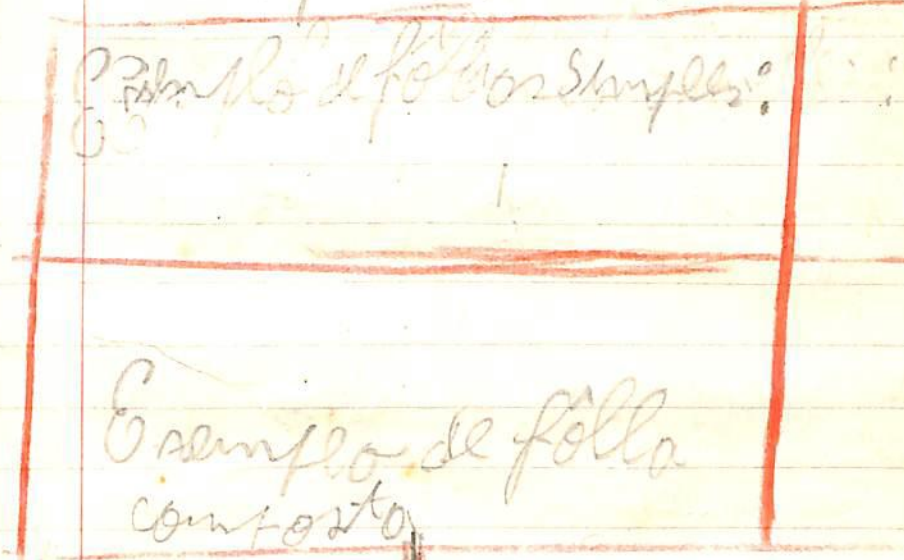 Exemplo de fôlhas simples:
Exemplo de fôlla
composta